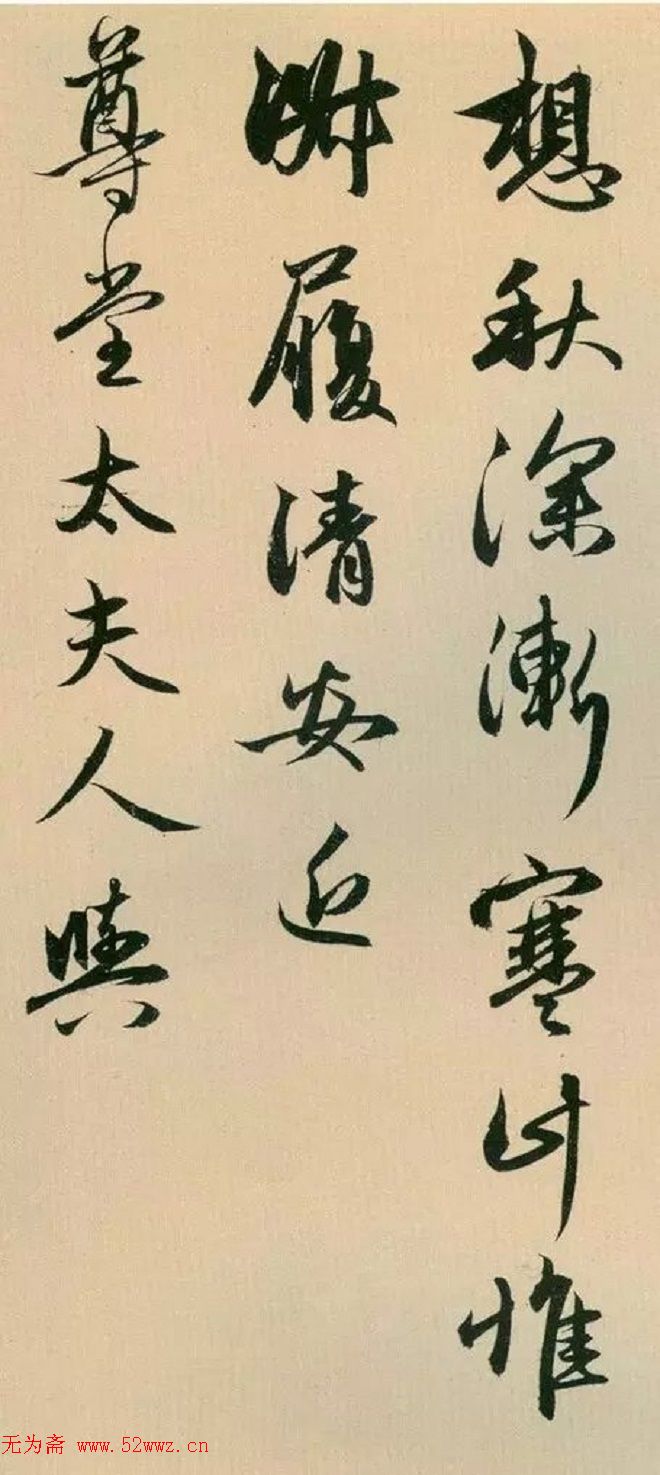 想秋深漸寒計惟
淵履清安近
尊堂太夫人與
无为斋 www.52wwz.cn